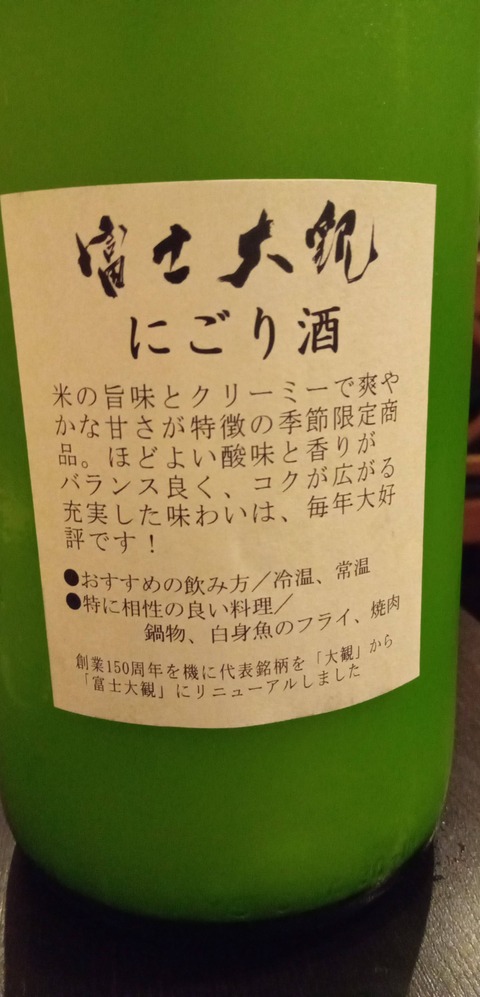 富士大観
にごり酒
米の旨味とクリーミーで爽や
かな甘さが特徴の季節限定商
品。ほどよい酸味と香りが
バランス良く、コクが広がる
充実した味わいは、毎年大好
評です！
●おすすめの飲み方／冷温、常温
●特に相性の良い料理／
鍋物、白身魚のフライ、焼肉
創業150周年を機に代表銘柄を「大観」から
「富士大観」にリニューアルしました